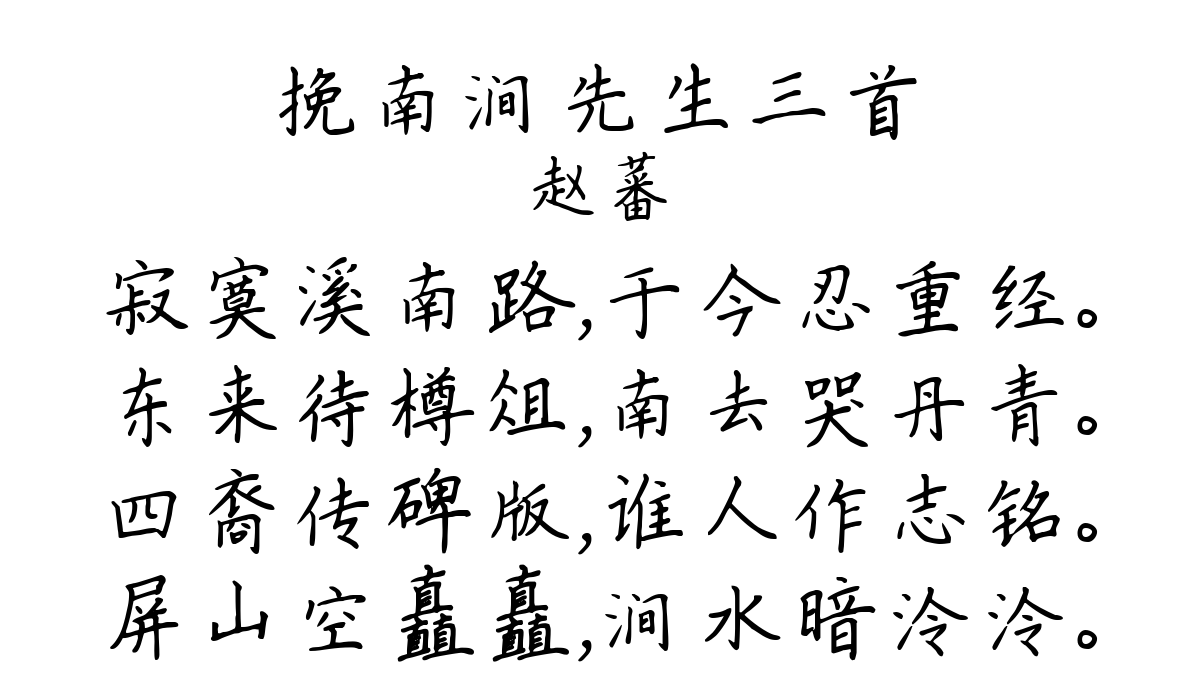 挽南涧先生三首
赵蕃
寂寞溪南路,于今忍重经。
东来待樽俎,南去哭丹青。
四裔传碑版,谁人作志铭。
屏山空矗矗,涧水暗泠泠。